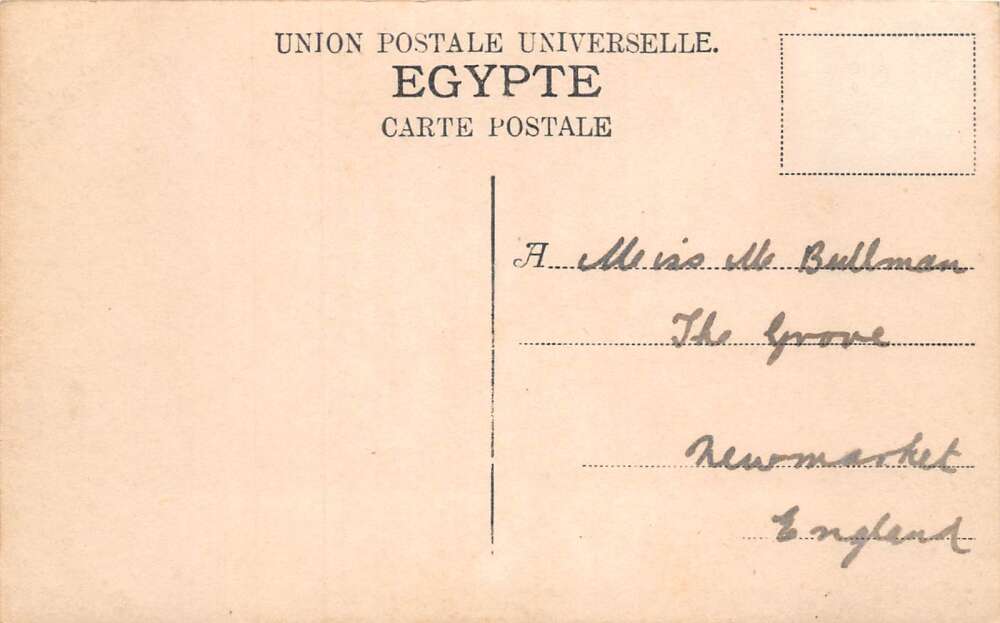 UNION POSTALE UNIVERSELLE.
EGYPTE
CARTE POSTALE
A Miss M Bullman
The Grove
Newmarket
England